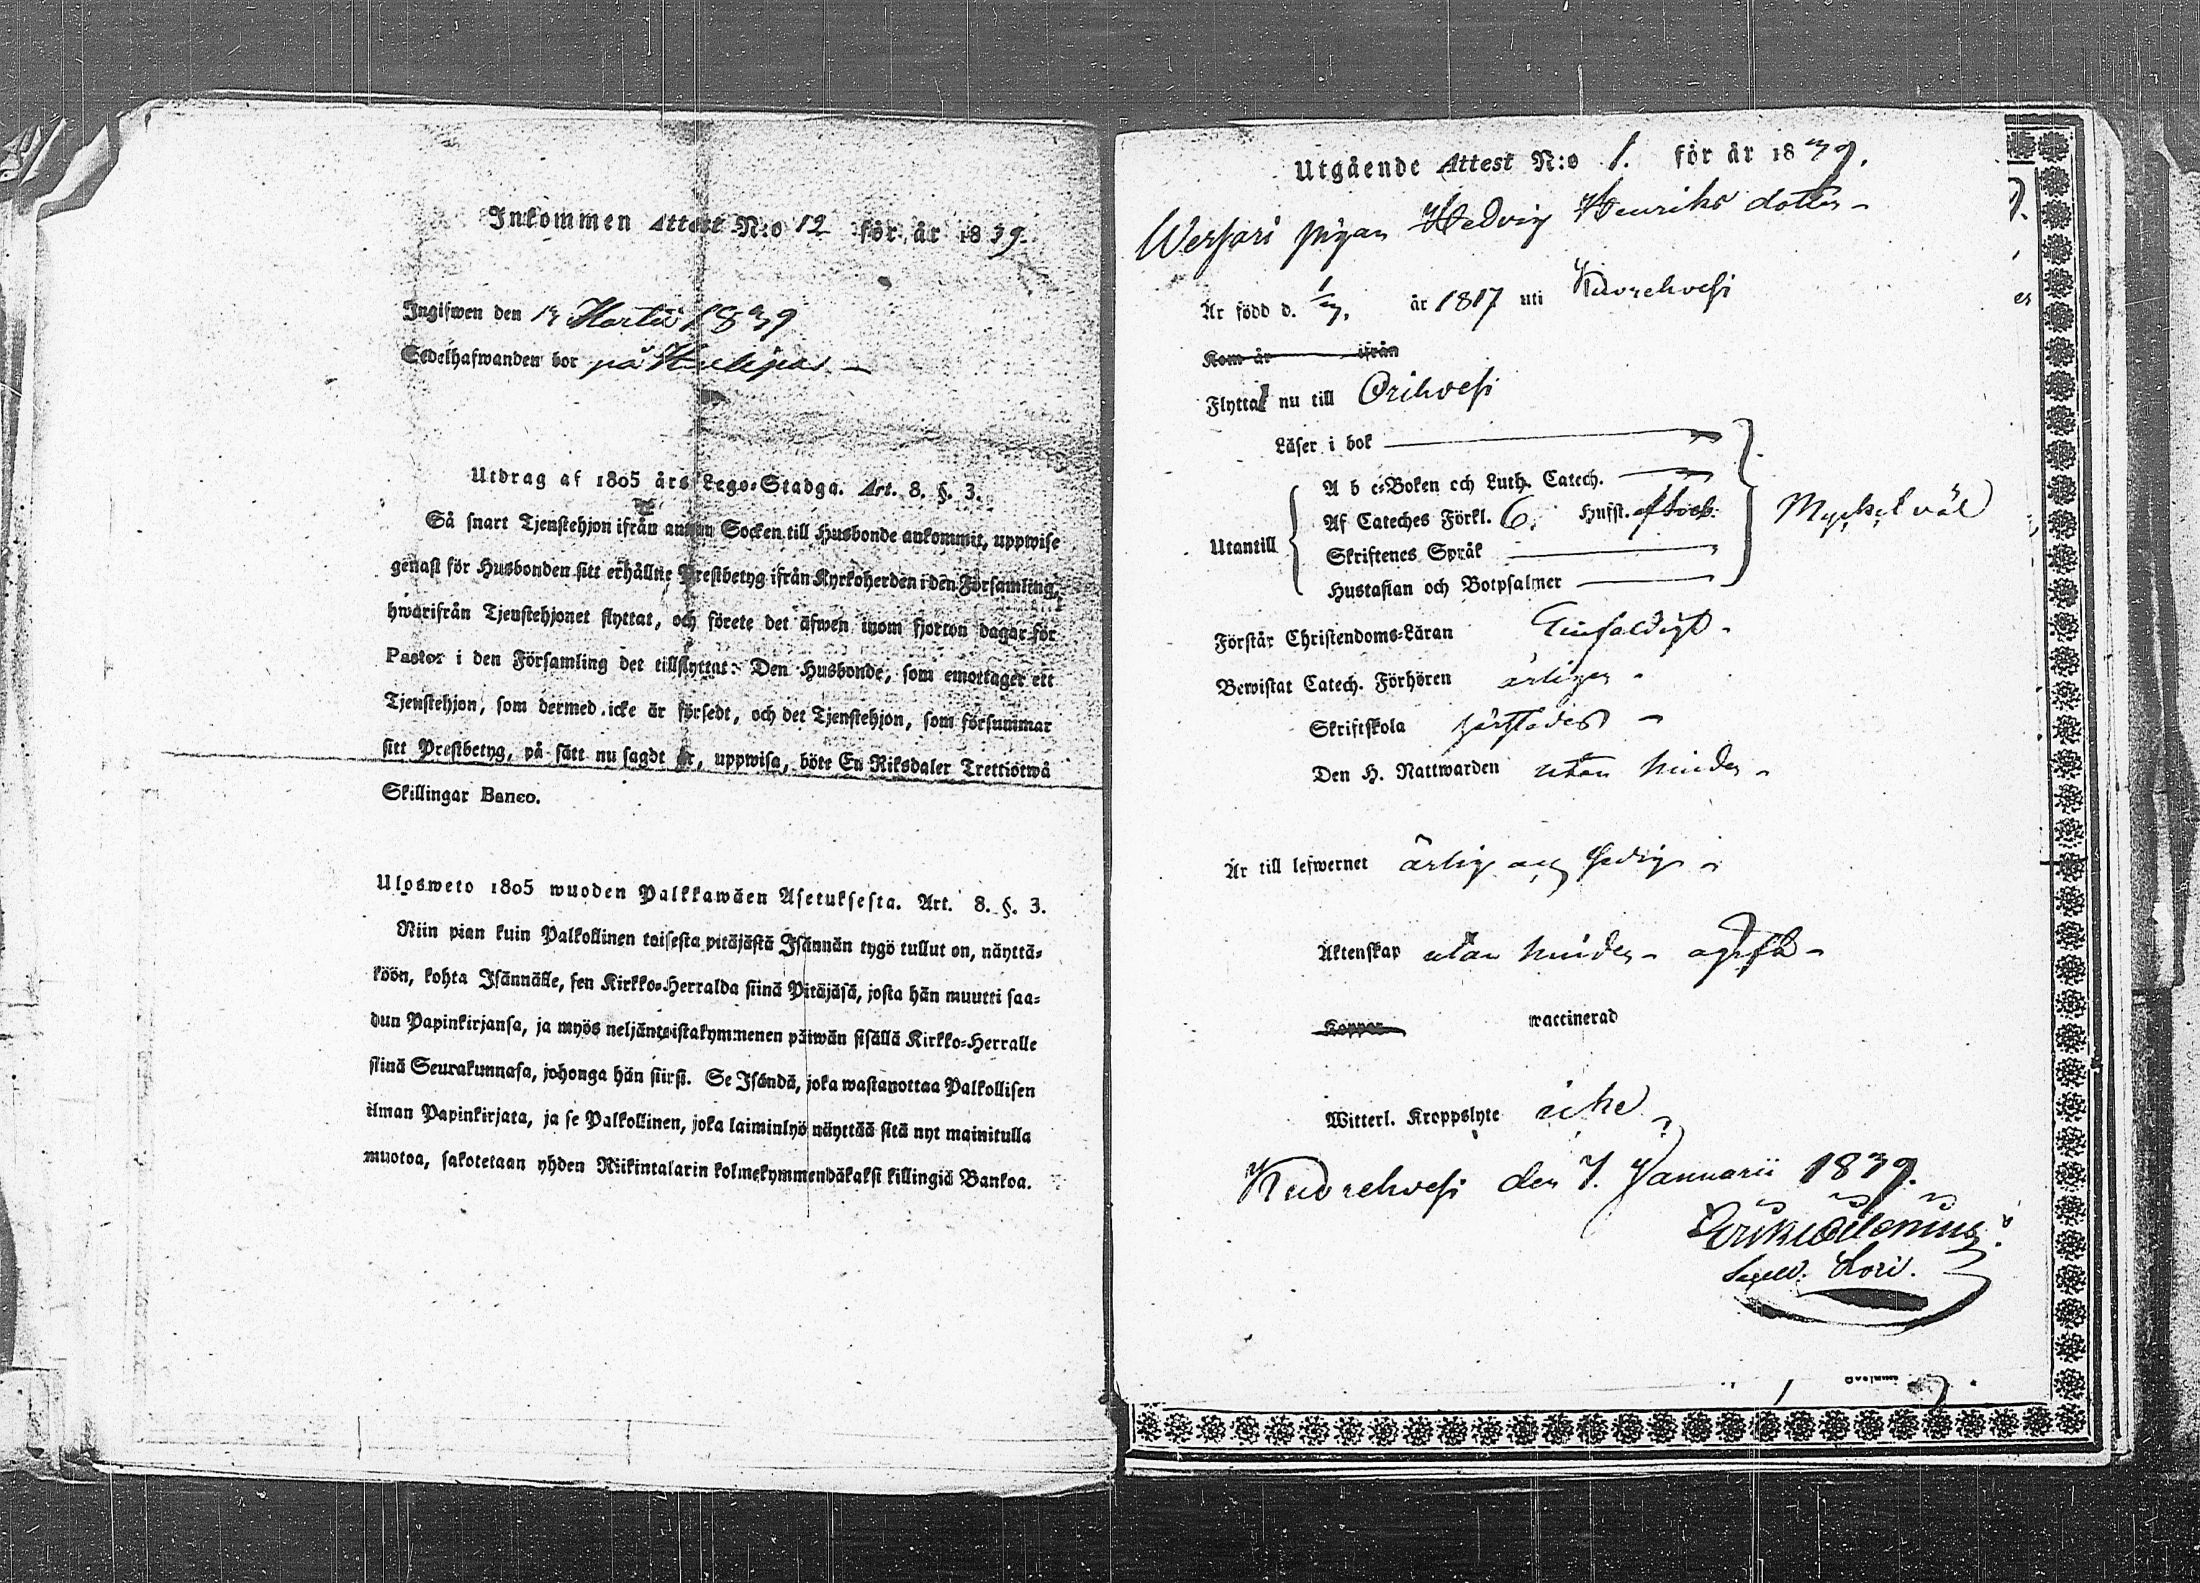 Inkommen Attest N:o 12 för år 1839.
Ingifwen den 13 Martii 1839
Sedelhafwanden bor på
Utdrag af 1805 års Lego-Stadga. Art. 8. §. 3.
Så snart Tjenstehjon ifrån annan Socken till Husbonde ankommit, uppwise
genast för Husbonden sitt erhållne Prestbetyg ifrån Kyrkoherden i den Församling,
hwarifrån Tjenstehjonet flyttat, och förete det äfwen inom fjorton dagar för
Pastor i den Församling det tillflyttat. Den Husbonde, som emottager ett
Tjenstehjon, som dermed icke är försedt, och det Tjenstehjon, som försummar
sitt Prestbetyg, på sätt nu sagdt är, uppwisa, böte En Riksdaler Trettiotwå
Skillingar Banco.
Ulosweto 1805 wuoden Palkkawäen Asetuksesta. Art. 8. §. 3.
Niin pian kuin Palkollinen toisesta pitäjästä Isännän tygö tullut on, näyttä-
köön, kohta Isännälle, sen Kirkko-Herralda siinä Pitäjäsä, josta hän muutti saa-
dun Papinkirjansa, ja myös neljäntoistakymmenen päiwän sisällä Kirkko-Herralle
siinä Seurakunnasa, johonga hän siirsi. Se Isändä, joka wastanottaa Palkollisen
ilman Papinkirjata, ja se Palkollinen, joka laiminlyö näyttää sitä nyt mainitulla
muotoa, sakotetaan yhden Riikintalarin kolmekymmendäkaksi killingiä Bankoa.
Utgående Attest N:o 1. för år 1839.
Werhari pigan Hedvig Henriks dotter
Är född d. 1/3. år 1817 uti Kuorehvesi
Kom år ifrån
Flyttar nu till Orihvesi
Läser i bok
A b c-Boken och Luth. Catech.
Utantill Af Cateches Förkl. 6. Husst. Mycket väl
Skriftenes Språk
Hustaflan och Botpsalmer
Förstår Christendoms-Läran Einfaldigt
Bewistat Catech. Förhören årligen
Skriftskola
Den H. Nattwarden utan hinder
Är till lefwernet ärlig och sedig
Äktenskap utan hinder
Koppor waccinerad
Witterl. Kroppslyte icke
Kuorehvesi den 7. Januarii 1839.